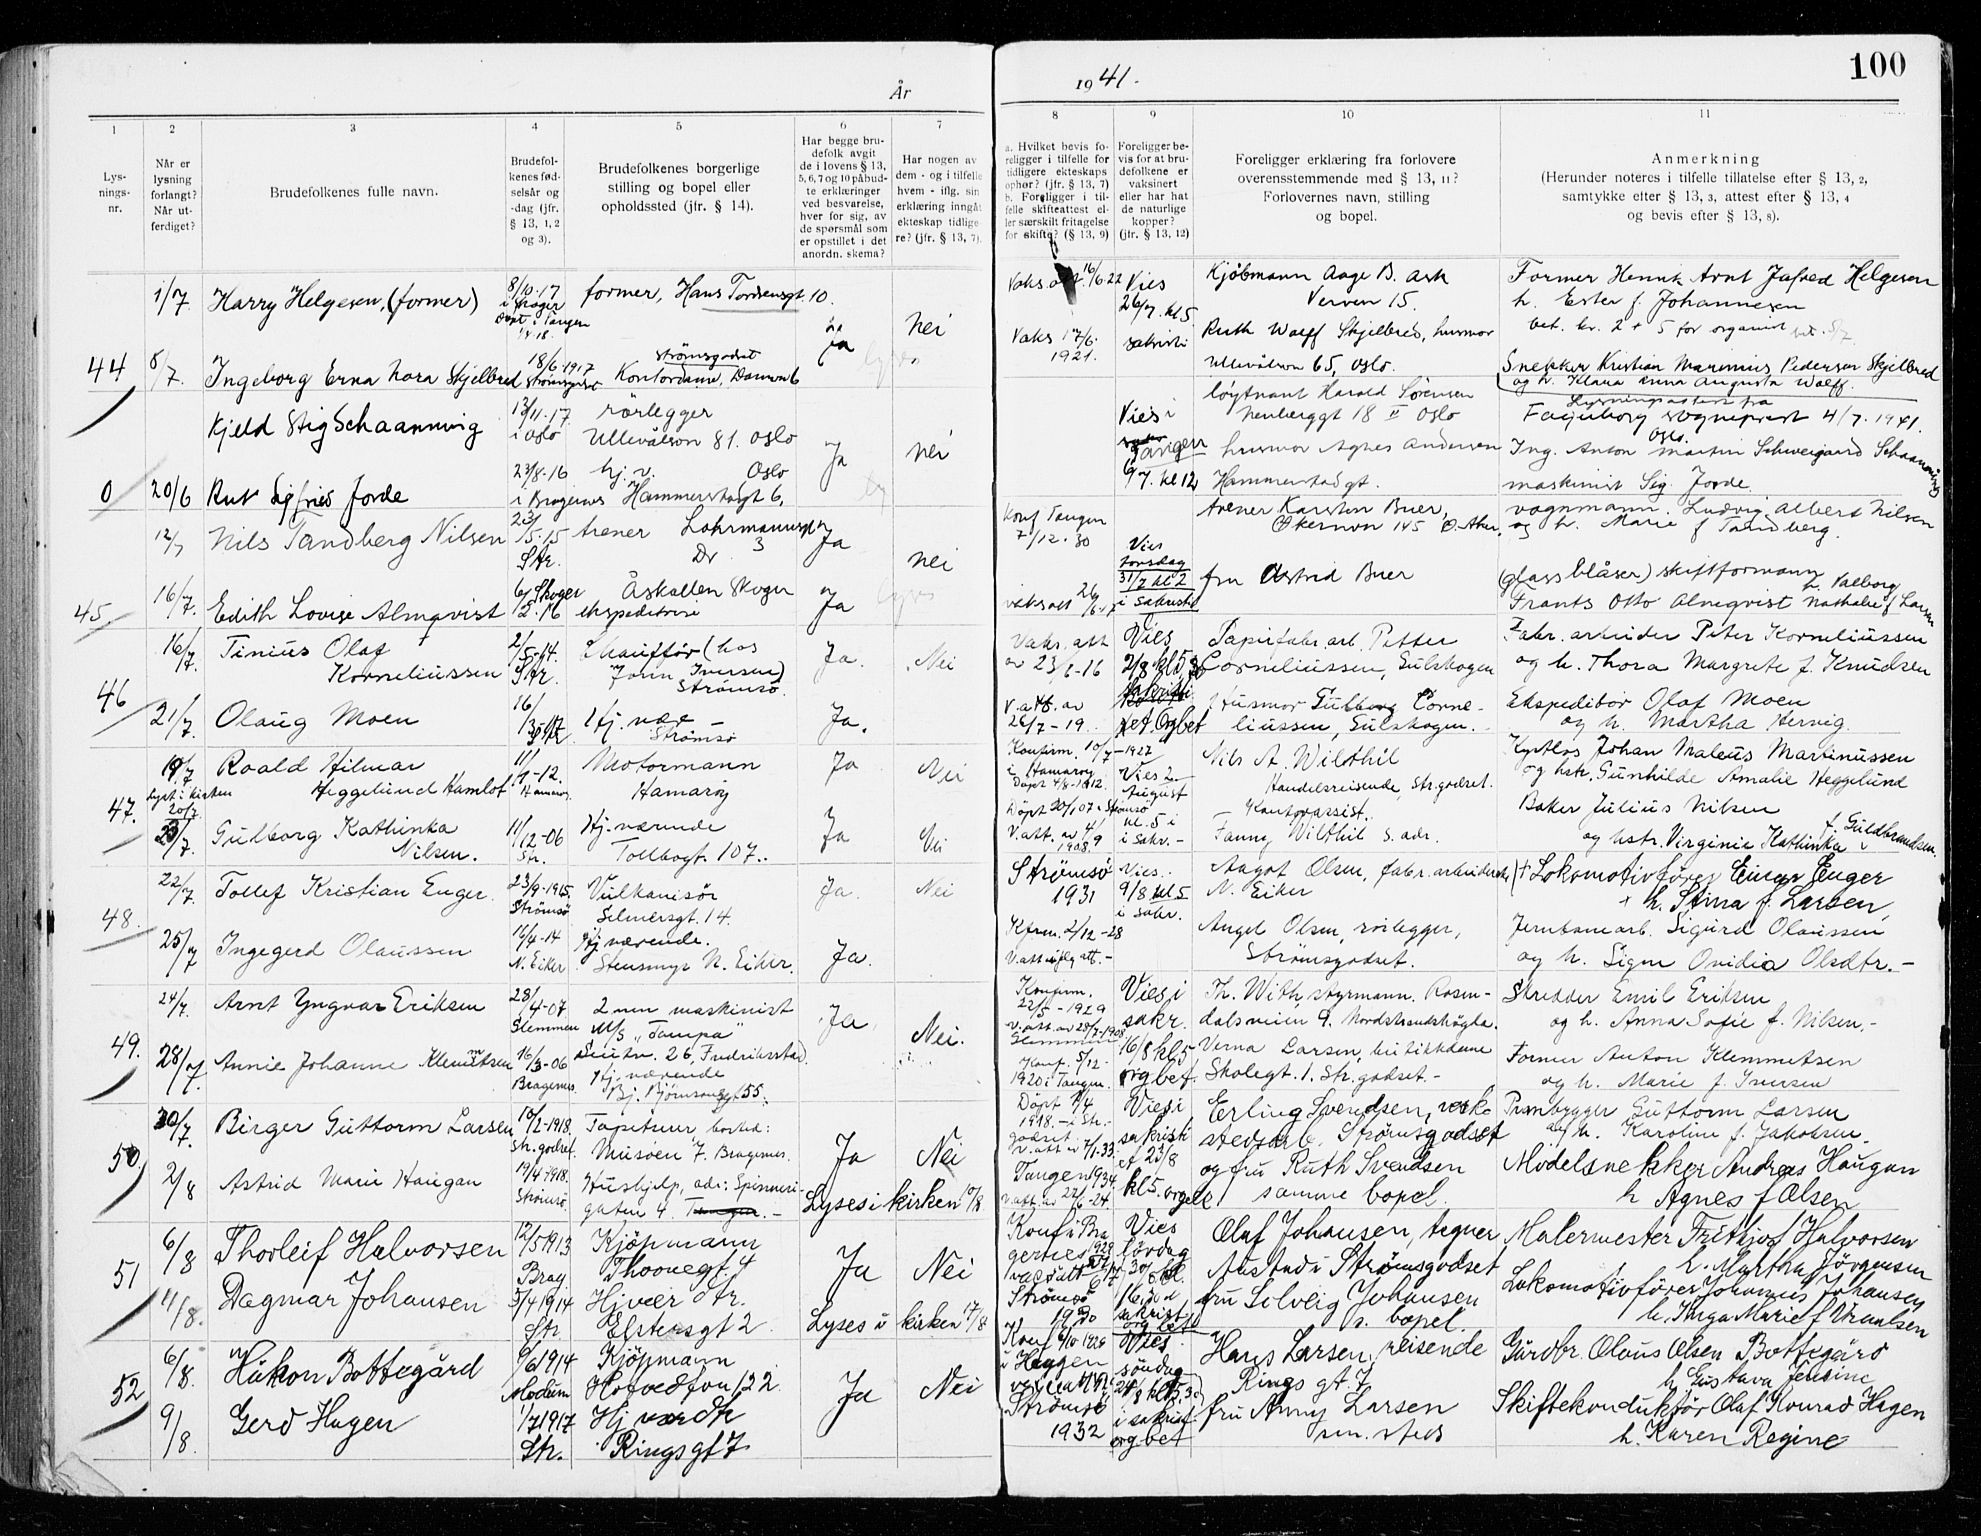 År
1941.
100
1
2
3
4
5
6
7
8
9
10
11
Lys-
nings-
nr.
Når er
lysning
forlangt?
Når ut-
ferdiget?
Brudefolkenes fulle navn.
Brudefol-
kenes fød-
selsår og
-dag (jfr.
§ 13, 1, 2
og 3).
Brudefolkenes borgerlige
stilling og bopel eller
opholdssted (jfr. § 14).
Har begge bru-
defolk avgit
de i lovens § 13,
5, 6, 7 og 10 påbud-
te erklæringer
ved besvarelse,
hver for sig, av
de spørsmål som
er opstillet i det
anordn. skema?
Har nogen av
dem - og i tilfelle
hvem - iflg. sin
erklæring inngåt
ekteskap tidlige-
re? (jfr. § 13, 7).
a. Hvilket bevis fo-
religger i tilfelle for
tidligere ekteskaps
ophør? (jfr. § 13, 7)
b. Foreligger i til-
felle skifteattest el-
ler særskilt fritagelse
for skifte? (§ 13, 9)
Foreligger be-
vis for at bru-
defolkene er
vaksinert
eller har hat
de naturlige
kopper?
(jfr. § 13, 12)
Foreligger erklæring fra forlovere
overensstemmende med § 13, 11?
Forlovernes navn, stilling
og bopel.
Anmerkning
(Herunder noteres i tilfelle tillatelse efter § 13, 2,
samtykke efter § 13, 3, attest efter § 13, 4
og bevis efter § 13, 8).
1/7. Harry Helgesen, (former) 8/10.17 former, Hans Tordsensgt 10. Ja nei
Vaks. att 16/6.22 Vies 26/7. kl 5 sakristi
Kjøbmann Aage B. Ask
Verven 15.
Former Henrik Arnt Jafred Helgesen
h. Ester f. Johannesen
bet. kr. 2 + 5 for organist
44 8/7. Ingeborg Erna Nora Skjelbred 18/6-1917 Strømsgodset Kontordame, Danvn 6
Vaks 17/6. 1921.
Ruth Wolff Skjelbred, husmor
Ullevålsvn 65, Oslo.
Snekker Kristian Marinius Pedersen Skjelbred
og h. Klara Anna Augusta Wolff.
Kjeld Stig Schaanning 13/11.17 i Oslo rørlegger
Ullevålsvn 81. Oslo Ja nei
Vies i Tangen 6/7. kl 12
løytnant Harald Sörensen
18 II Oslo
Lysningsattest fra
Fagerborg sogneprest 4/7. 1941.
Oslo.
husmor Agnes Andersen
Hammerstadgt.
Ing. Anton Martin Schweigaard Schaanning
0 20/6 Rut Sigfried Jorde 23/8-16 i Bragernes hj. v. Oslo
Hammerstadgt 6,
maskinist Sig. Jorde.
12/7 Nils Tandberg Nilsen 23/5.15 Str. trener Lohrmannsgt 3 Dr Ja nei
Konf Tangen 7/12.30
Vies torsdag 31/7 kl 2 i sakristi
trener Karsten Buer,
Økernvn 145 Ø. Aker.
vognmann. Ludvig Albert Nilsen
og h. Marie f Tandberg.
45. 16/7. Edith Lovise Almqvist 6/12.16 Skoger Åskollen Skoger
ekspeditrise Ja
fru Astrid Buer
(glassblåser) skiftformann
Frants Otto Almqvist h. Valborg Nathalie f Larsen
16/7. Tinius Olaf
Korneliussen 2/5-14. Str. Chauffør (hos
John Iversen)
Strømsø. Ja. Nei
Vaks. att
av 23/6-16
Vies 2/8 kl 5,30
Papirfabr. arb. Petter
Corneliussen, Gulskogen
Fabr. arbeider Peter Korneliussen
og h. Thora Margrete f. Knudsen
46 21/7. Olaug Moen 16/3-17 Str Hj. vær –
Strømsø Ja.
V. att. av
26/7-19. sakristi
Husmor Gulborg Corne-
liussen, Gulskogen. –
Ekspeditør Olaf Moen
og h. Martha Hervig
19/7 Roald Hilmar
Heggelund Hamlot 11/1-12. Hamarøy Motormann
Hamarøy Ja Nei
Lyst i kirken
20/7
Konfirm. 10/7-1927
i Hamarøy
Vies 2. August kl. 5 i sakr. –
Nils A. Wilthil
Handelsreisende, Str.godset.
Johan Maleus Martinussen
og hstr. Gunhilde Amalie Heggelund
47. 23/7. Gulborg Kathinka
Nilsen. 11/12-06 Str. Hj. værende
Tollbogt. 107.. Ja Nei
V. att. av
1908.
Kontorassist.
Fanny Wilthil s. adr.
Baker Julius Nilsen
og hstr. Virginia Kathinka f. Guldbrandsen.
22/7. Tollef Kristian Enger. 23/9-1915. Strømsø Vulkanisør
Selmersgt. 14. Ja Nei
Strømsø
1931
Vies..
9/8 kl 5
i sakr.
Aagot Olsen, fabr. arbeiderske
N. Eiker
+ Lokomotivfører Einar Enger
+ h. Stina f. Larsen,
48. 25/7 Ingegerd Olaussen 16/4-14 N. Eiker Hj. værende.
Stensmyr N. Eiker. Ja.
Kfrm. 2/12-28
Angel Olsen, rørlegger,
Strømsgodset.
Jernbanearb. Sigurd Olaussen
og h. Signe Ovidia Olsdtr. –
24/7. Arnt Yngvar Eriksen 28/4-07. Glemmen 2 nen maskinist
M/S „Tampa"
26, Fredriksstad Ja Nei.
Konfirm.
22/5-1929
V. att. av 28/7-1908
Glemmen
Vies i
sakr.
16/8 kl 5
org bet.
Th. With, styrmann. Rosen-
dalsveien 9. Nordstrandshøgda.
Skredder Emil Eriksen
og h. Anna Sofie f. Nilsen. –
49. 28/7. Annie Johanne Klemmetsen 16/3-06 Bragernes. Hj. værende
Bj. Bjørnsonsgt 55.
Konf. 5/12-
1920 i Tangen.
Verna Larsen, butikkdame
Skolegt. 1. Str. godset –
Former Anton Klemmetsen
og h. Marie f. Iversen
30/7. Birger Guttorm Larsen 10/2-1918. Str. godset. Tapetserer bosted:
Museen 7. Bragernes. Ja Nei
Döpt 1/4
1918. – i Str.-
godset.
Vies i
sakristi
23/8
kl 5. orgel
Erling Svendsen, verk-
stedsarb. Strømsgodset
Guttorm Larsen
og h. Karoline f. Jakobsen.
50 2/8 Astrid Marie Haugan 19/4-1918. Strømsø. Hushjelp, adr: Spinneri-
gaten 4. Tangen. – Lyses i kirken 10/8
Tangen 1934.
V. att. av 22/6-24.
og fru Ruth Svendsen
samme bopel.
Modelsnekker Andreas Haugan
h Agnes f Olsen
6/8 Thorleif Halvorsen 12/5 1913 Brag Kjöpmann
Thornegt. 4 Ja Nei
Konf i Bra
gernes 1928
Vies
lördag
30/8
Olaf Johansen, tegner
Austadv Strømsgodset
Malermester Fritjof Halvorsen
h. Martha Jörgensen
51 11/8. Dagmar Johansen 5/4 1914 Str. Hj vær Str.
Elstersgt 2 Lyses i kirken 17/8
Strömsö
1930
sakristi
org bet
fru Solveig Johansen
s. bopel.
Lokomotivförer Johannes Johansen
h. Inga Marie f Vraalsen
6/8. Håkon Bottegård 9/6 1914 Modum Kjöpmann
Hotvedtvn 122 Ja Nei
Konf 6/10 1929
i Heggen
Vies
söndag
24/8 kl 5.30
i sakrist.
org bet
Hans Larsen, reisende
Rings gt 7
Gårdbr. Olaus Olsen Bottegård
h. Gustava Jensine
52 9/8. Gerd Hagen 1/7 1917 Str. Hj vær Str
Ringsgt 7
Strömsö
1932
fru Anny Larsen
sm. steds
Skiftekonduktör Olaf Konrad Hagen
h. Karen Regine